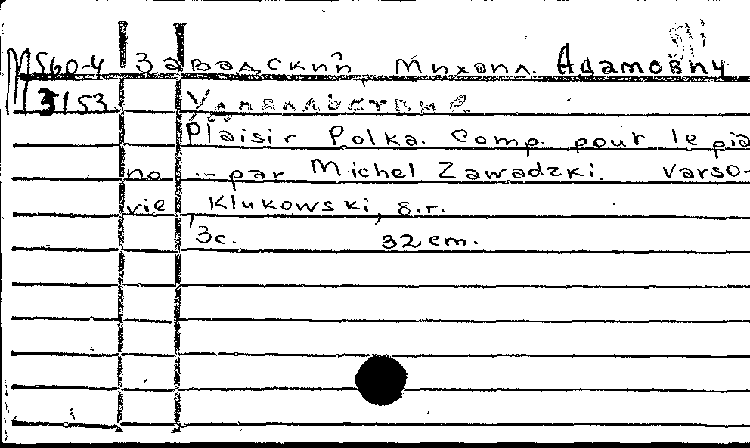 М560-4 Завадский, Михаил Адамович
3153 Удовольствие
Plaisir Polka. Comp. pour le pia
no ... par Michel Zawadzki. Varso-
vie, Klukowski, s.r.
3c. 32 cm.